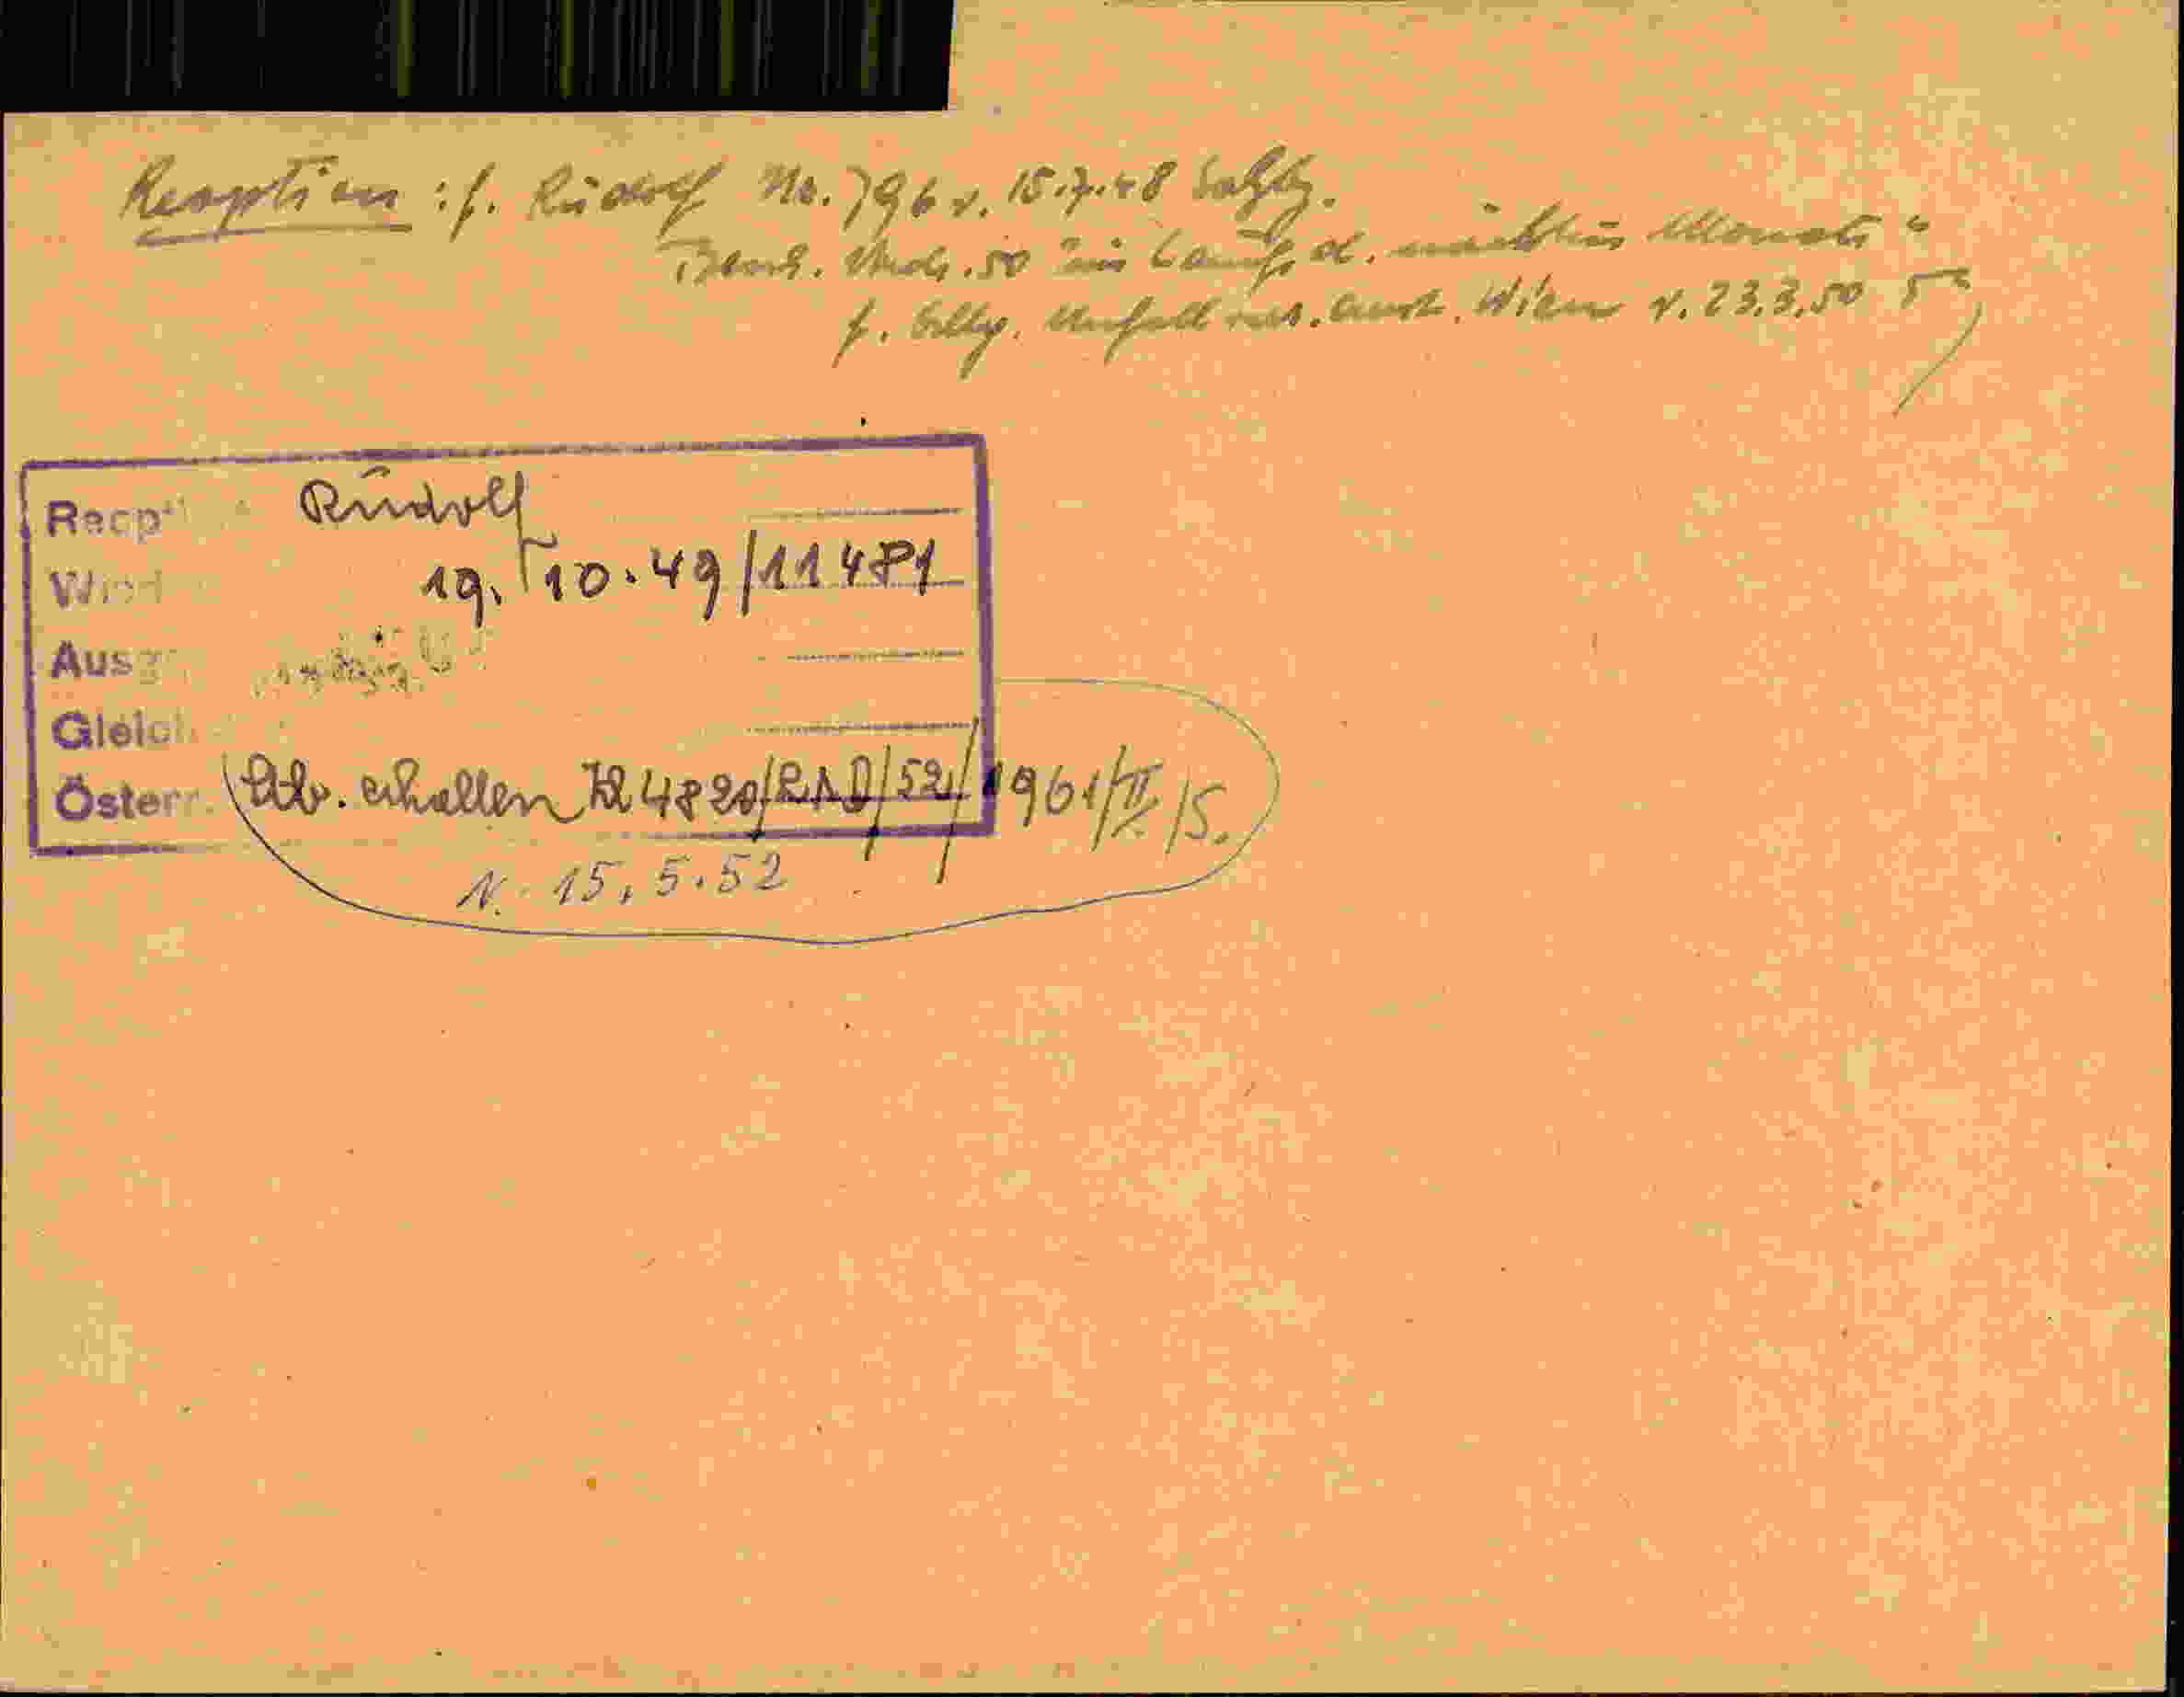 Reaption : f. Rudolf Nr. 796 v. 15.7.48 Salzbg.
50 " im Laufe d. nächsten Monats "
f. Allg. Unfall vers. Anst. Wien v. 23.3.50
Rudolf
19. 10. 49/11481
Aus
Gleich
Österr. Stb. erhalten Zl 4820/RAD/52/1961/II/S.
v. 15.5.52